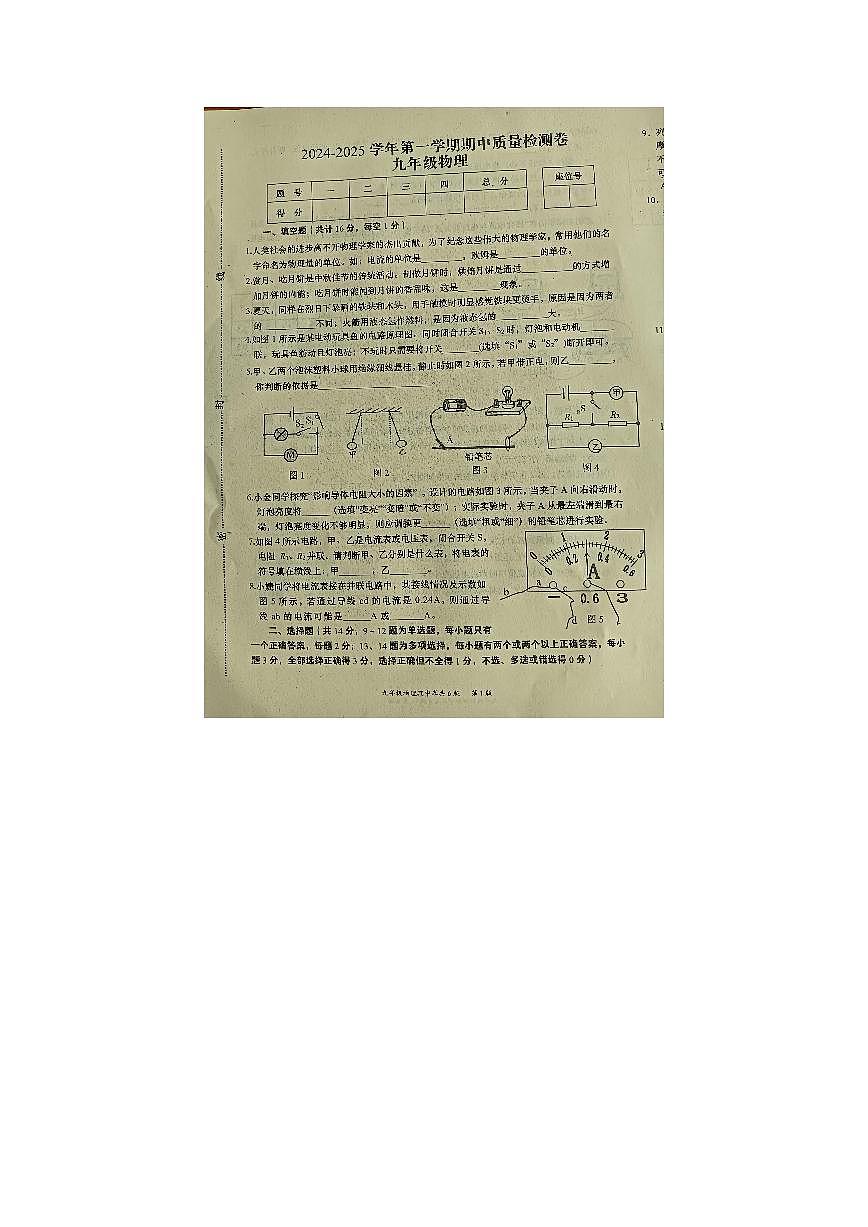 2024-2025 学年第一学期期中质量检测卷
九年级物理
题 号 一 二 三 四 总 分 座位号
得 分
一、填空题（共计16分，每空1分）
1.人类社会的进步离不开物理学家的杰出贡献，为了纪念这些伟大的物理学家，常用他们的名
字命名为物理量的单位。如：电流的单位是________，欧姆是________的单位。
2.赏月、吃月饼是中秋佳节的传统活动。制做月饼时，烘焙月饼是通过________的方式增
加月饼的内能；吃月饼时能闻到月饼的香甜味，这是________现象。
3.夏天，同样在烈日下暴晒的铁块和木头，用手触摸时明显感觉铁块更烫手，原因是因为两者
的________不同；火箭用液态氢作燃料，是因为液态氢的________大。
4.如图1所示是某电动玩具鱼的电路原理图。同时闭合开关S₁、S₂时，灯泡和电动机____
联，玩具鱼游动且灯泡亮；不玩时只需要将开关______(选填“S₁”或“S₂”)断开即可。
5.甲、乙两个泡沫塑料小球用绝缘细线悬挂，静止时如图2所示，若甲带正电，则乙________，
你判断的依据是____________________
S₂ S₁
M
图1
甲 乙
图2
A
铅笔芯
图3
甲
S
R₁ R₂
乙
图4
6.小金同学探究“影响导体电阻大小的因素”，设计的电路如图3所示，当夹子A向右滑动时，
灯泡亮度将______(选填“变亮”“变暗”或“不变”)；实际实验时，夹子A从最左端滑到最右
端，灯泡亮度变化不够明显，则应调换更______(选填“粗或“细”)的铅笔芯进行实验。
7.如图4所示电路，甲、乙是电流表或电压表，闭合开关S，
电阻R₁、R₂并联。请判断甲、乙分别是什么表，将电表的
符号填在横线上：甲______；乙______。
8.小婕同学将电流表接在并联电路中，其接线情况及示数如
图5所示，若通过导线cd的电流是0.24A，则通过导
线ab的电流可能是______A或______A。
0 1 2 3
0 0.2 0.4 0.6
A
b a c
− 0.6 3
d
图5
二、选择题（共14分，9～12题为单选题，每小题只有
一个正确答案，每题2分；13、14题为多项选择，每小题有两个或两个以上正确答案，每小
题3分，全部选择正确得3分，选择正确但不全得1分，不选、多选或错选得0分）
九年级物理期中卷共6版 第1版
线
封
密
9.
10.
11